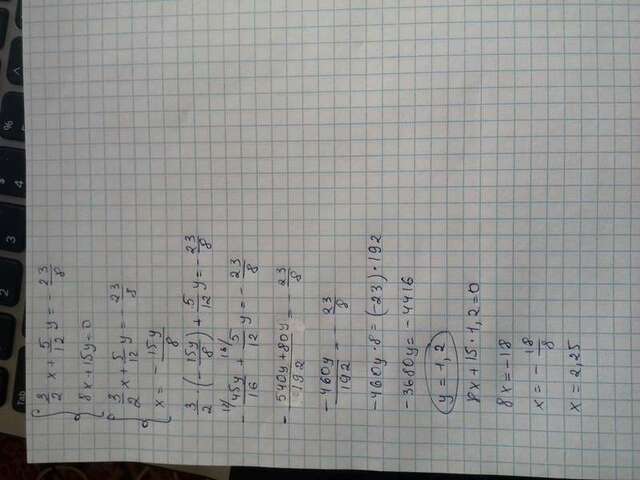 3/2 x + 5/12 y = - 23/8
8x + 15y = 0
3/2 x + 5/12 y = - 23/8
x = - 15y/8
3/2 · (- 15y/8) + 5/12 y = - 23/8
- 45y/16 + 5/12 y = - 23/8
- 540y + 80y / 192 = - 23/8
- 460y/192 = - 23/8
-460y · 8 = (-23) · 192
-3680y = -4416
y = 1,2
8x + 15 · 1,2 = 0
8x = -18
x = - 18/8
x = 2,25